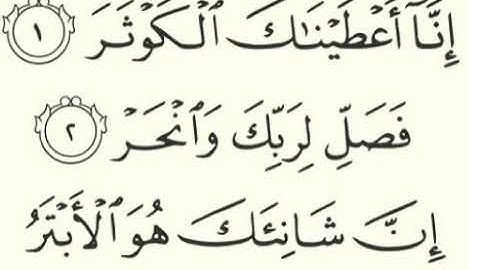 إِنَّآ أَعۡطَيۡنَٰكَ ٱلۡكَوۡثَرَ ١
فَصَلِّ لِرَبِّكَ وَٱنۡحَرۡ ٢
إِنَّ شَانِئَكَ هُوَ ٱلۡأَبۡتَرُ